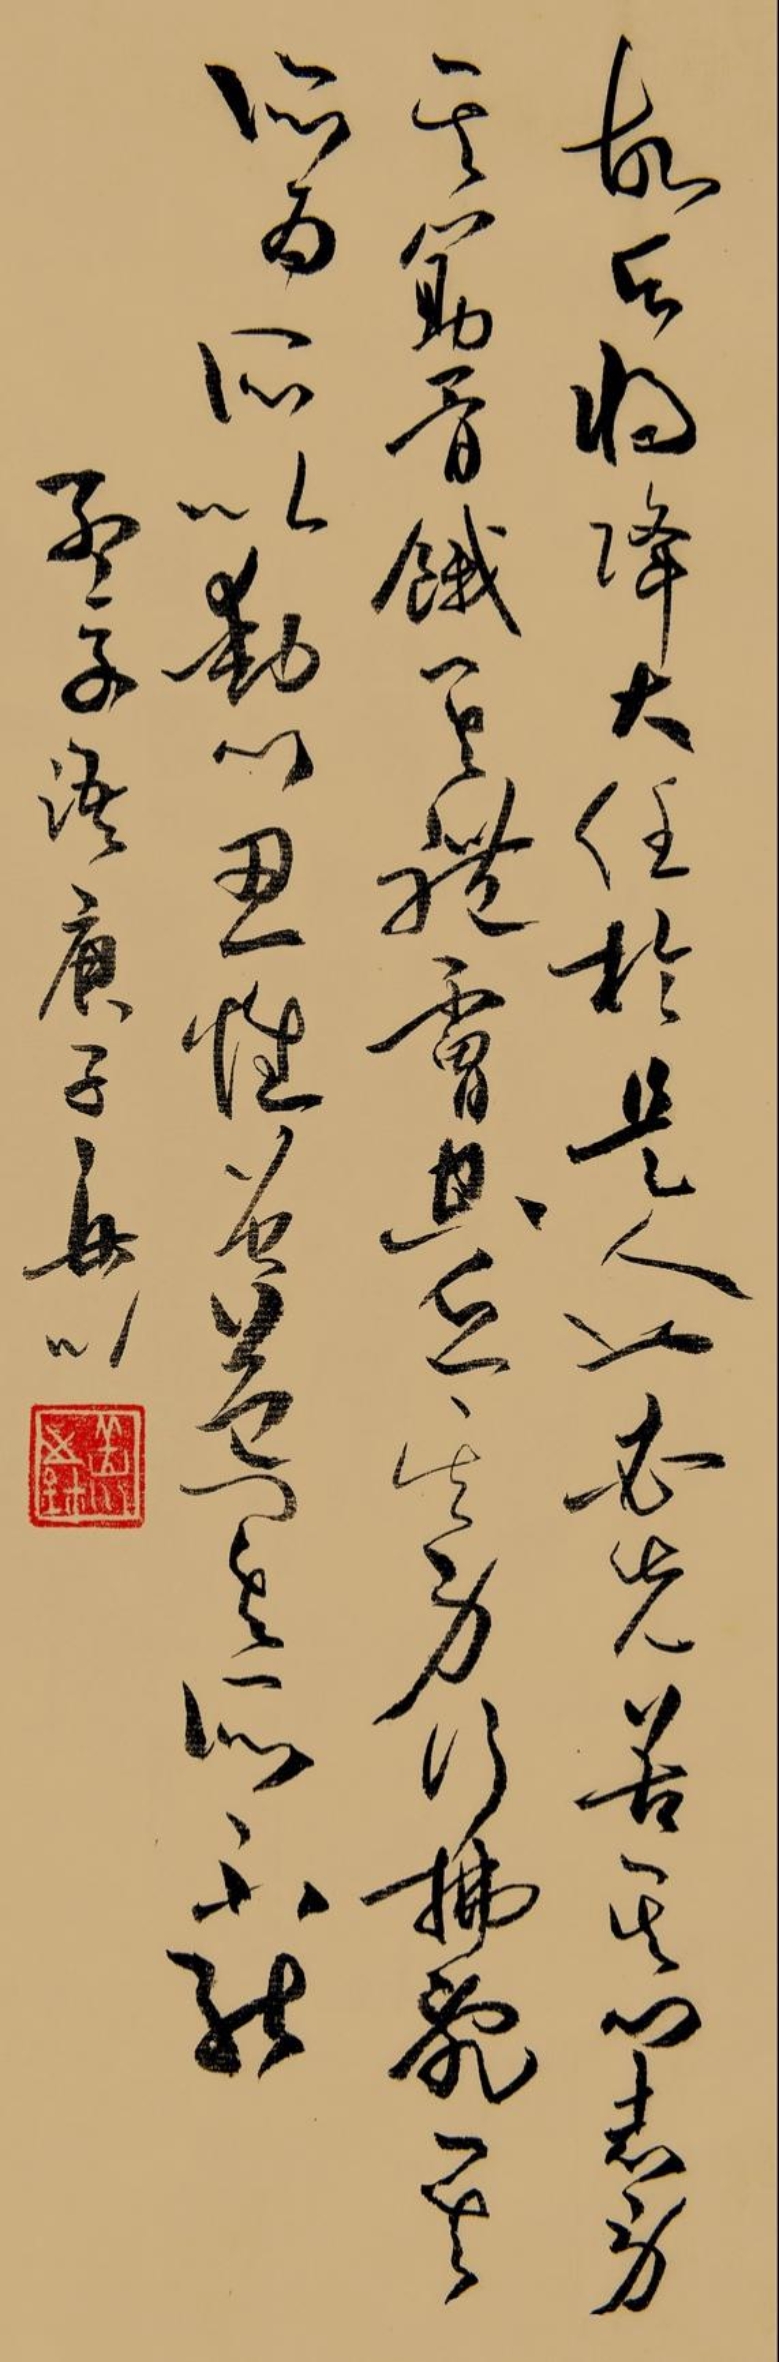 故天将降大任於是人也必先苦其心志劳
其筋骨餓其體膚空乏其身行拂亂其
所為所以動心忍性曾益其所不能
孟子語庚子